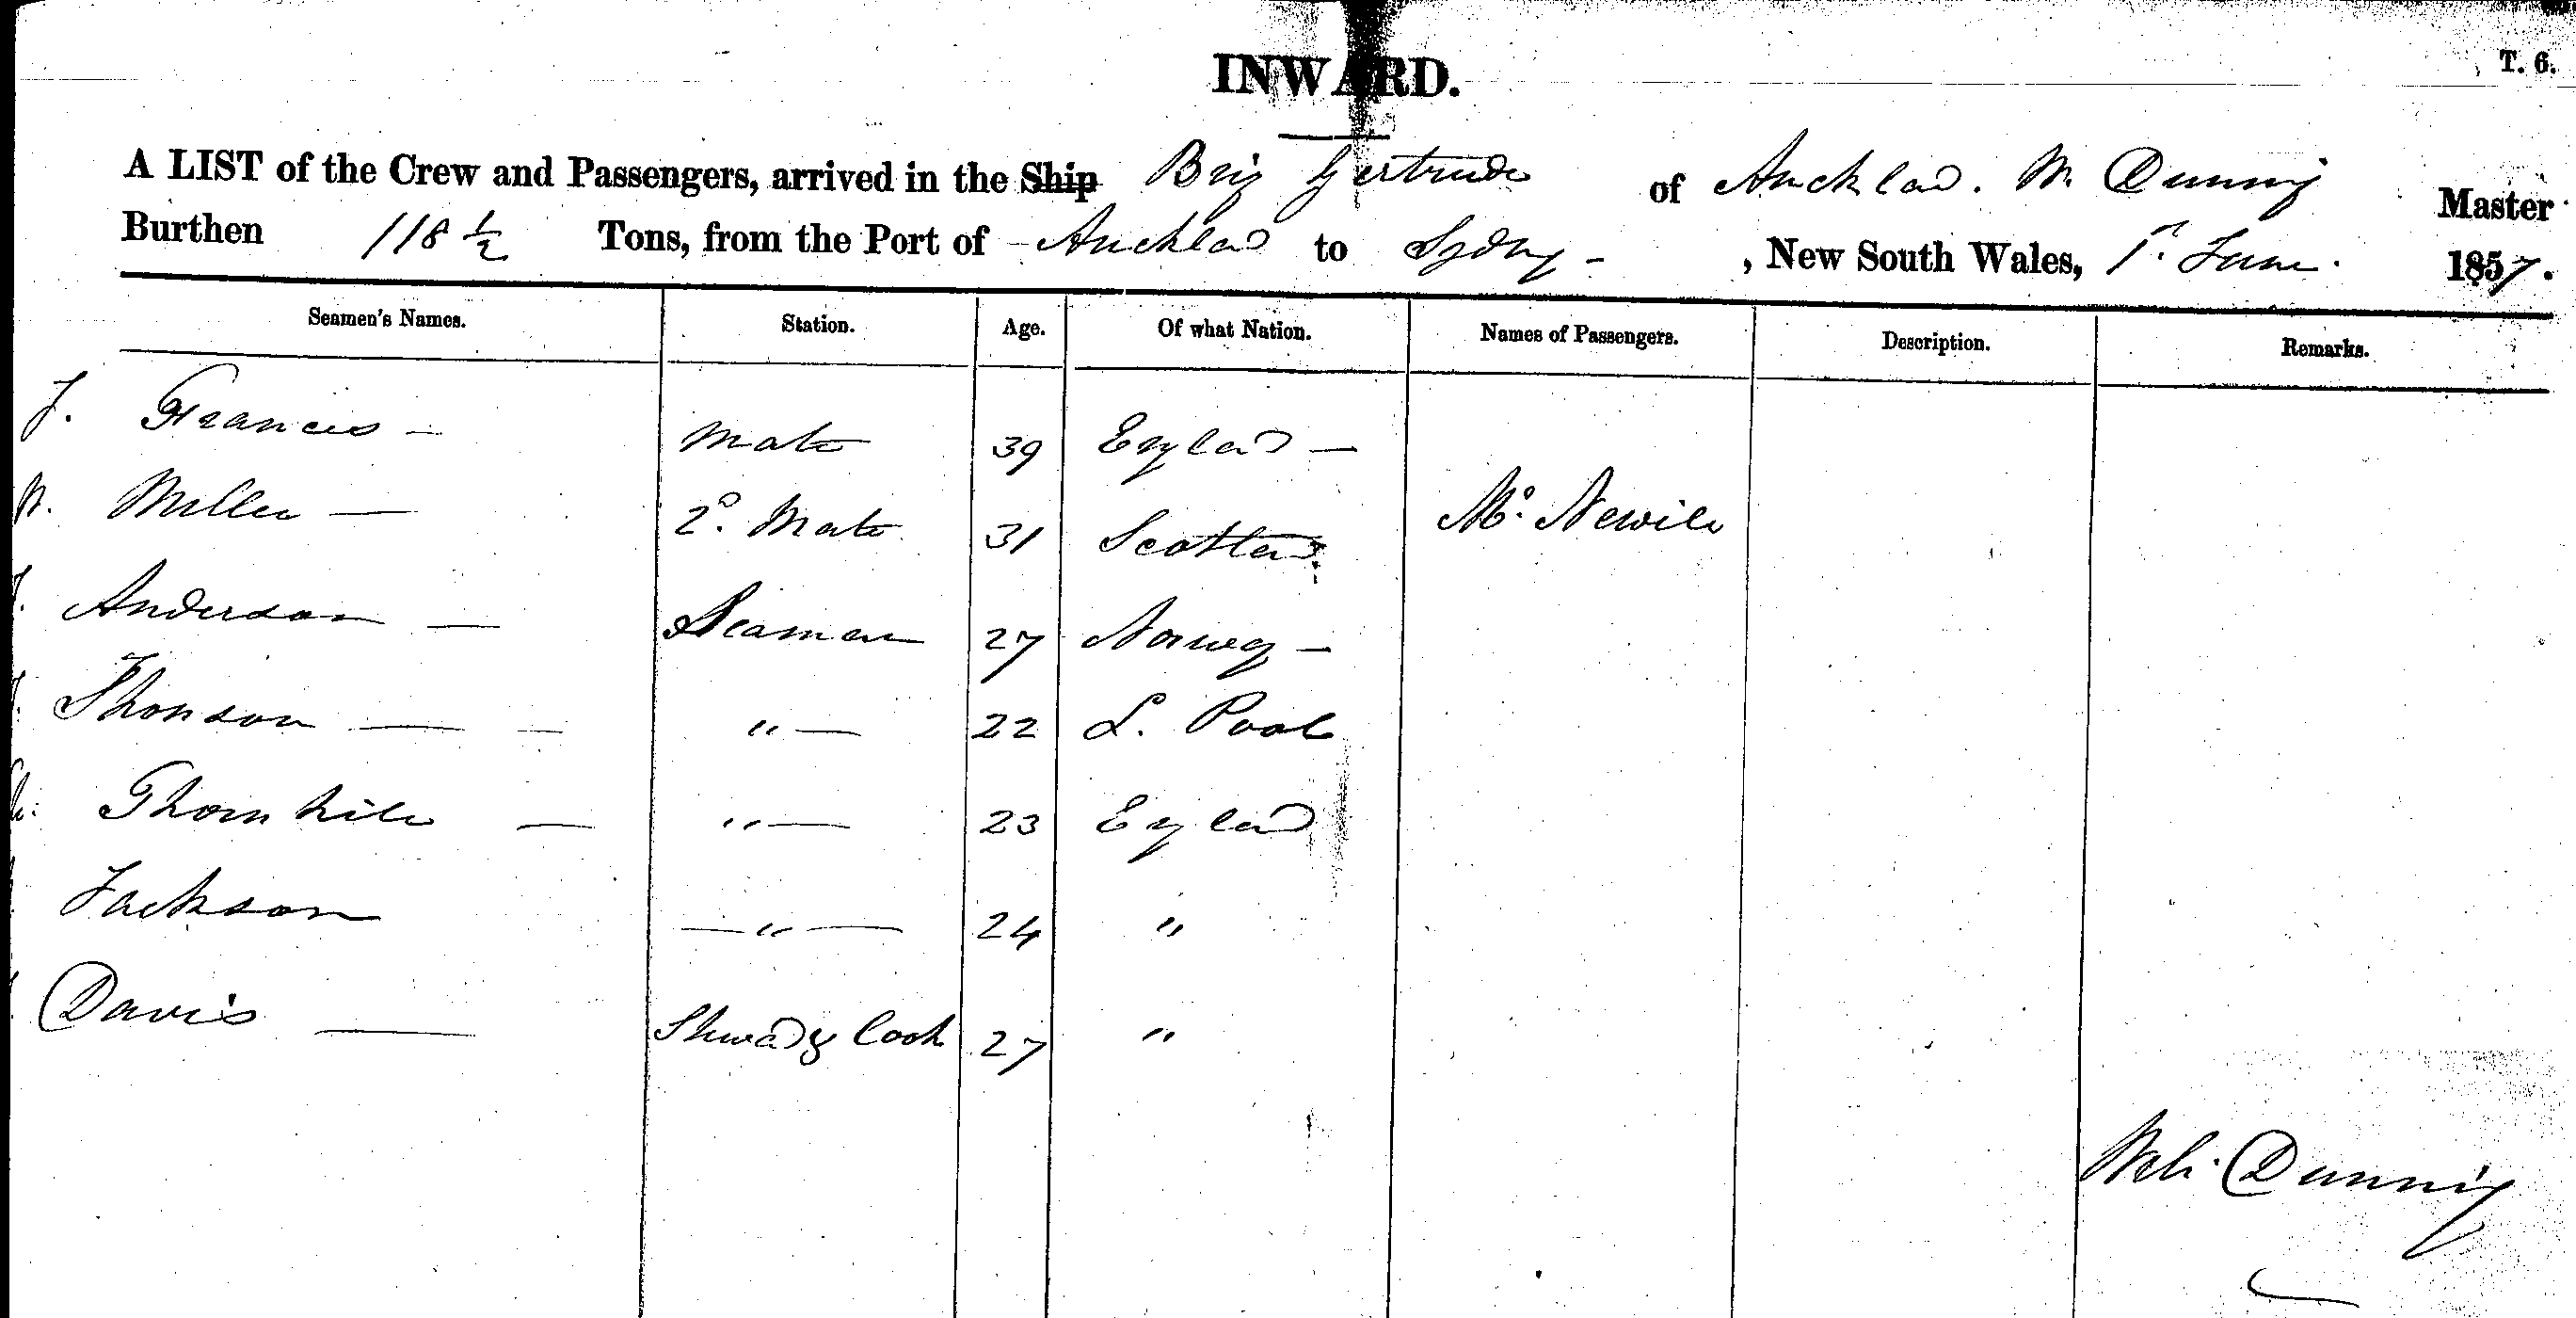 INWARD.
T. 6.
A LIST of the Crew and Passengers, arrived in the Ship Brig Gertrude of Auckland. W. Dunning Master
Burthen 118 1/2 Tons, from the Port of Auckland to Sydney - , New South Wales, 1st June. 1857.
Seamen's Names. Station. Age. Of what Nation. Names of Passengers. Description. Remarks.
J. Francis - Mate 39 England -
W. Miller - 2d. Mate 31 Scotland. Mr. Newill
Anderson - Seaman 27 Norway -
Thonson - - " - 22 L. Pool
Thornhill - " - 23 England
Jackson - " - 24 "
Davis - Steward & Cook 27 "
Wm. Dunning